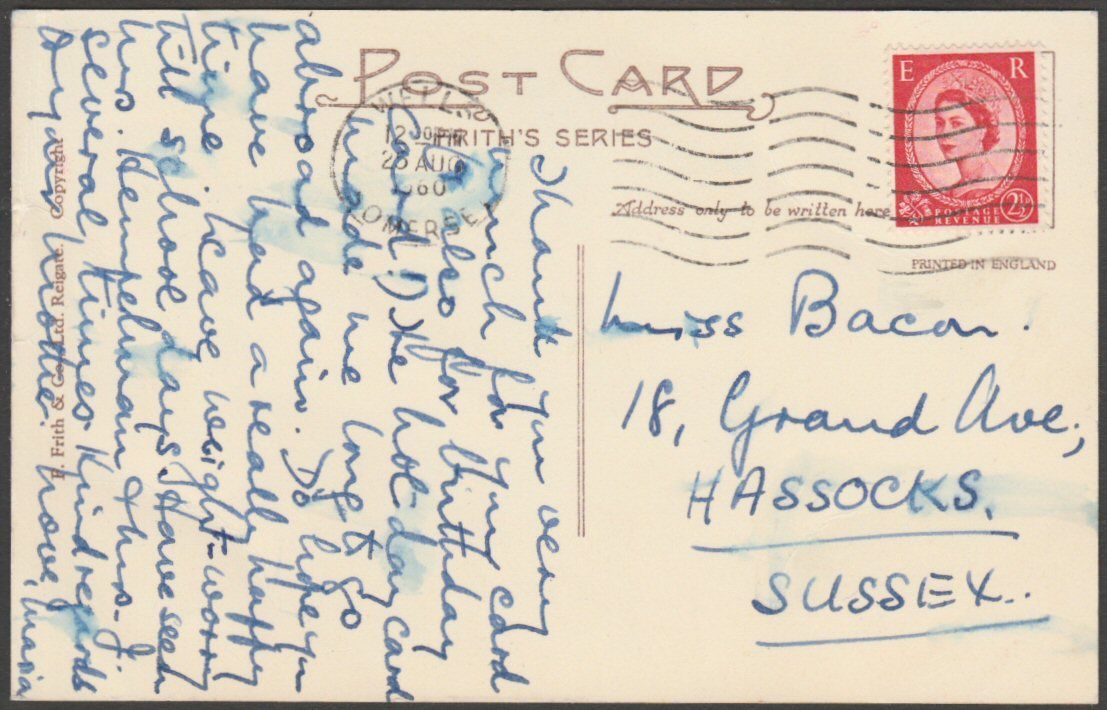 POST CARD
FRITH'S SERIES
WELLS
12 00 PM
25 AUG
1960
SOMERSET
E R
POSTAGE
REVENUE
2½
Address only to be written here
PRINTED IN ENGLAND
F. Frith & Co., Ltd. Reigate. Copyright
Thank you very
much for your card
(& also for birthday
card!) The hol-day card
made me long to go
abroad again. Do hope you
have had a really happy
time. I leave weight-worry
till school days. Have seen
Mrs. Hempelmann & Mrs. J.
several times. Kind regards
to your mother. Love, Maria
Miss Bacon.
18, Grand Ave,
HASSOCKS.
SUSSEX.